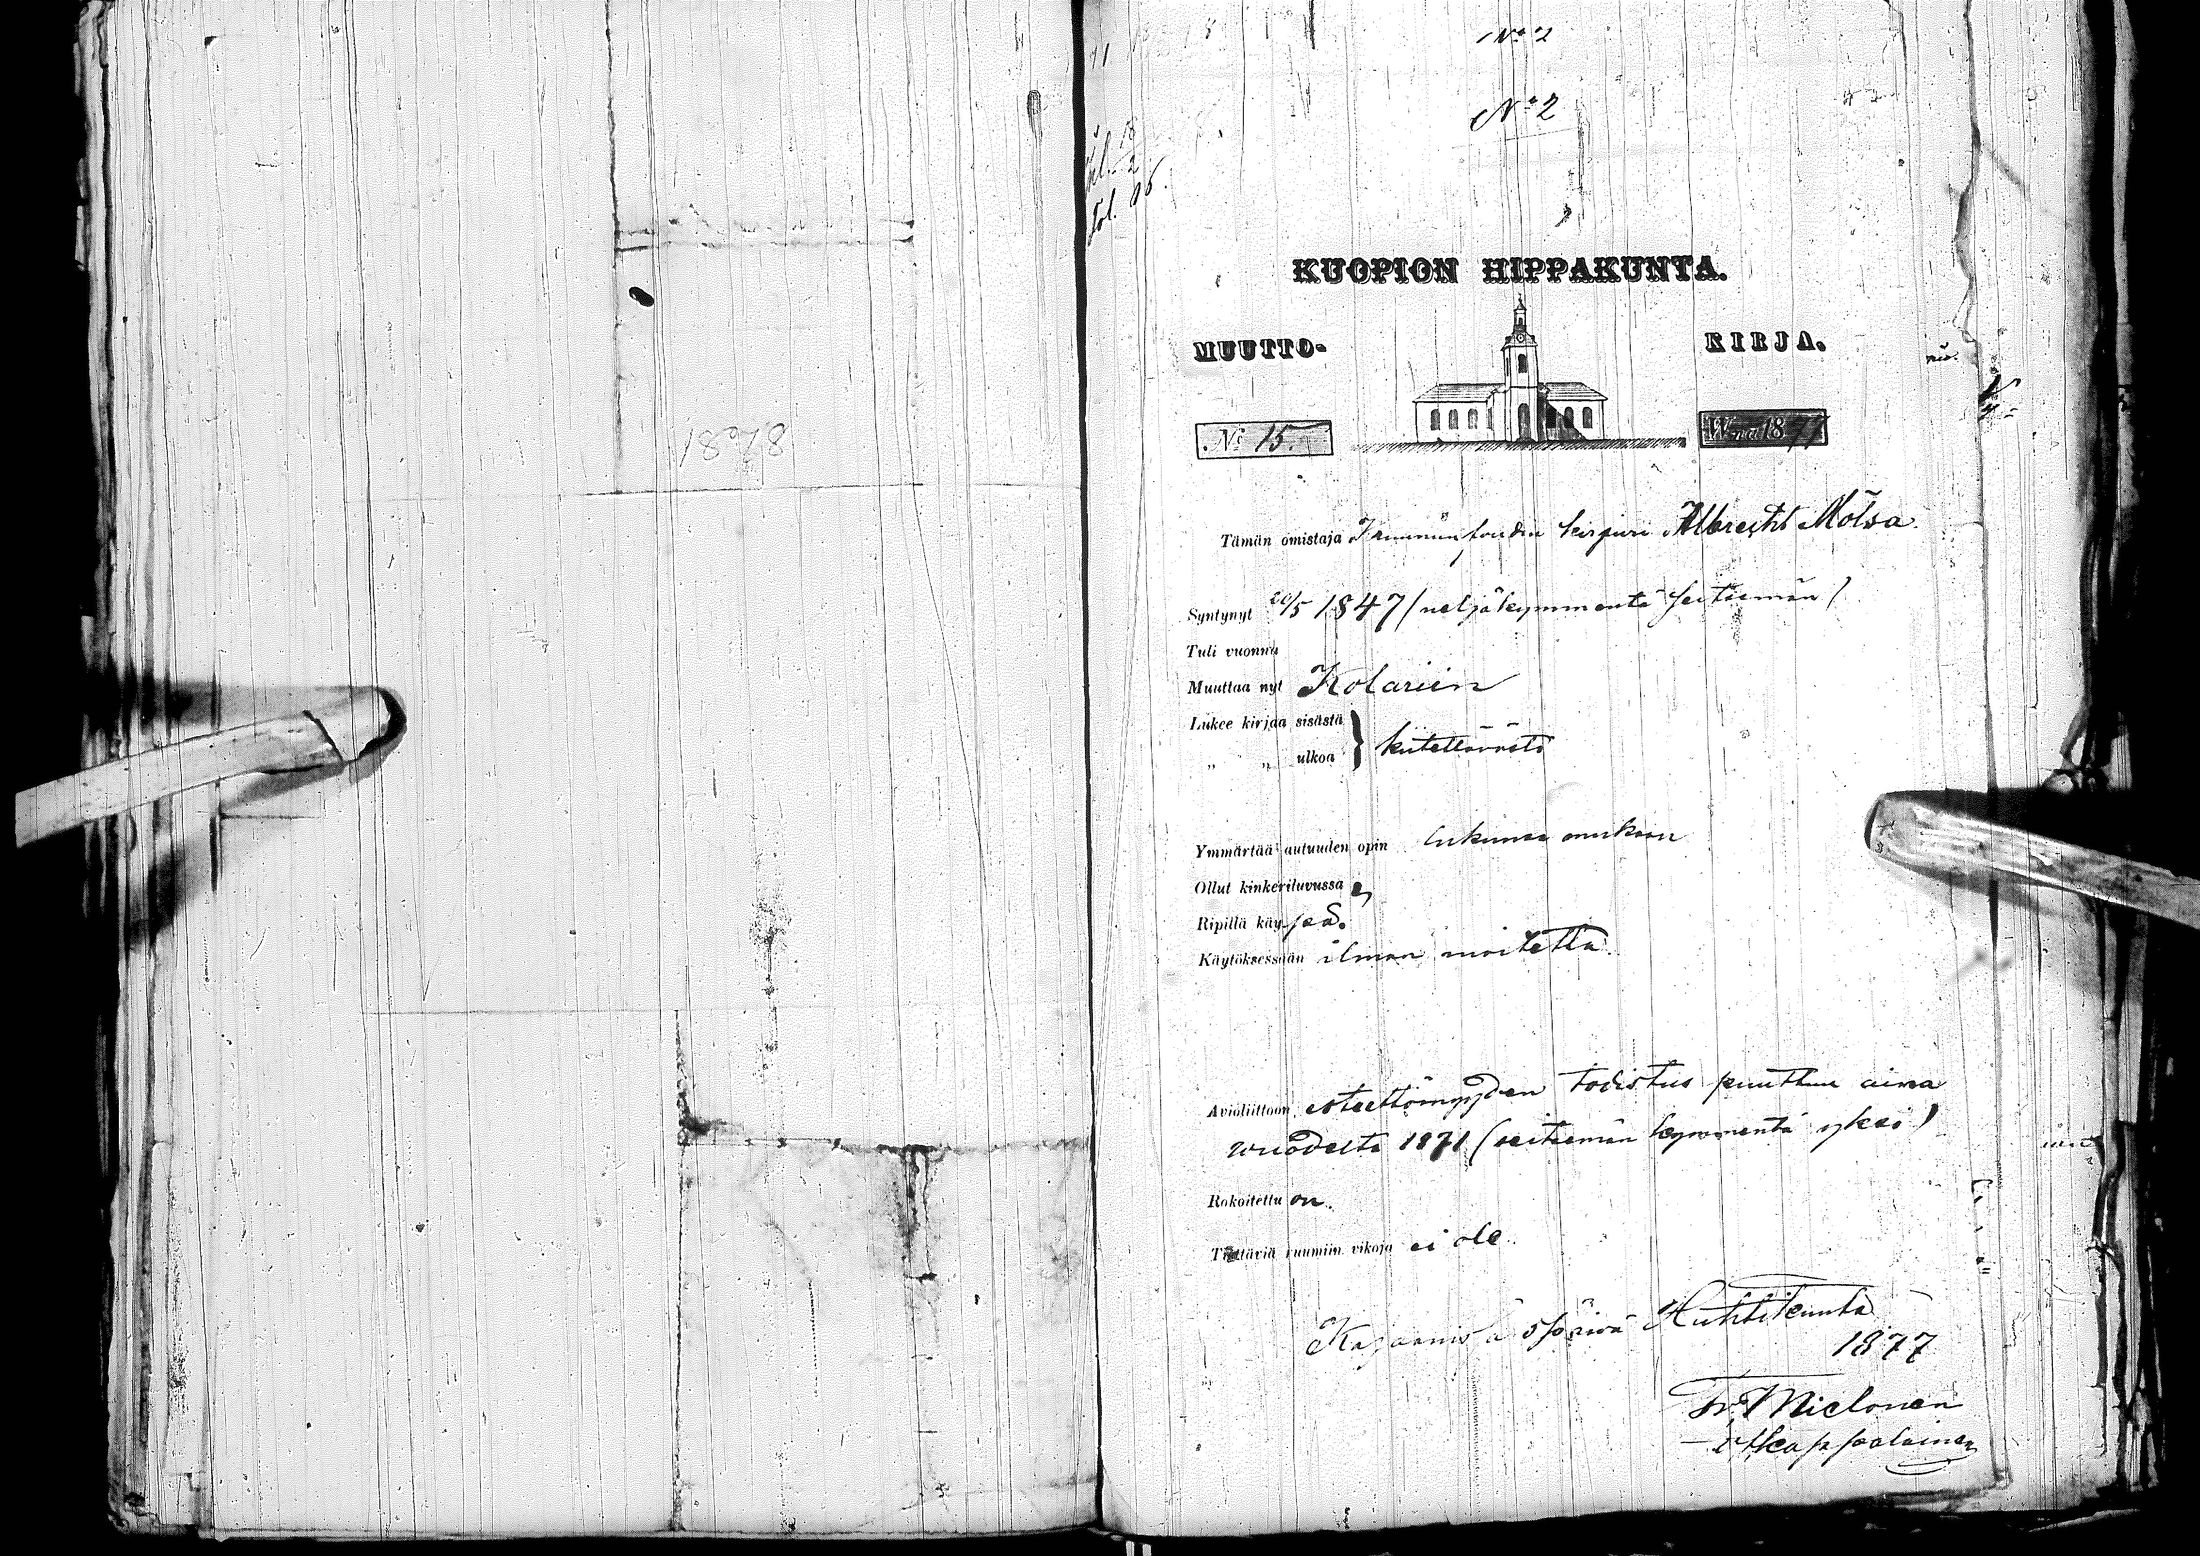 No 2
No 2
KUOPION HIPPAKUNTA.
MUUTTO- KIRJA.
No 15. W-na 1877
Tämän omistaja Kruununfoudin kirjuri Albrecht Mölsä.
Syntynyt 20/5 1847 (neljäkymmentä seitsemän)
Tuli vuonna
Muuttaa nyt Kolariin
Lukee kirjaa sisästä
" " ulkoa } kiitettävästi
Ymmärtää autuuden opin lukunsa mukaan
Ollut kinkeriluvussa
Ripillä käy
Käytöksessään ilman moitetta.
Avioliittoon esteettömyyden todistus puuttuu aina
wuodesta 1871 (seitsemän kymmentä yksi)
Rokoitettu on.
Täyttäviä ruumiin vikoja ei ole.
Kajaanissa 5 päivä Huhtikuuta
1877
Fr. Mielonen
v. t. kappalainen